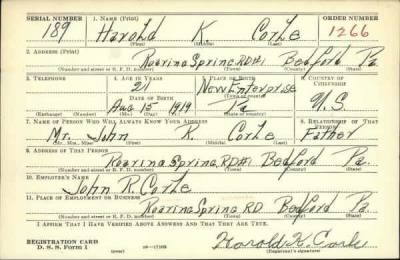 SERIAL NUMBER 1. NAME (Print) ORDER NUMBER
189 Harold K. Corle 1266
(First) (Middle) (Last)
2. ADDRESS (Print)
Roaring Spring RD#1 Bedford Pa
(Number and street or R. F. D. number) (Town) (County) (State)
3. TELEPHONE 4. AGE IN YEARS 5. PLACE OF BIRTH 6. COUNTRY OF CITIZENSHIP
21 New Enterprise
DATE OF BIRTH (Town or county)
Aug 15 1919 Pa U.S.
(Exchange) (Number) (Mo.) (Day) (Yr.) (State or country)
7. NAME OF PERSON WHO WILL ALWAYS KNOW YOUR ADDRESS 8. RELATIONSHIP OF THAT PERSON
Mr. John R. Corle Father
(Mr., Mrs., Miss) (First) (Middle) (Last)
9. ADDRESS OF THAT PERSON
Roaring Spring, RD#1 Bedford Pa.
(Number and street or R. F. D. number) (Town) (County) (State)
10. EMPLOYER'S NAME
John R. Corle
11. PLACE OF EMPLOYMENT OR BUSINESS
Roaring Spring RD Bedford Pa
(Number and street or R. F. D. number) (Town) (County) (State)
I AFFIRM THAT I HAVE VERIFIED ABOVE ANSWERS AND THAT THEY ARE TRUE.
REGISTRATION CARD
D. S. S. Form 1 Harold K. Corle
(Registrant's signature)